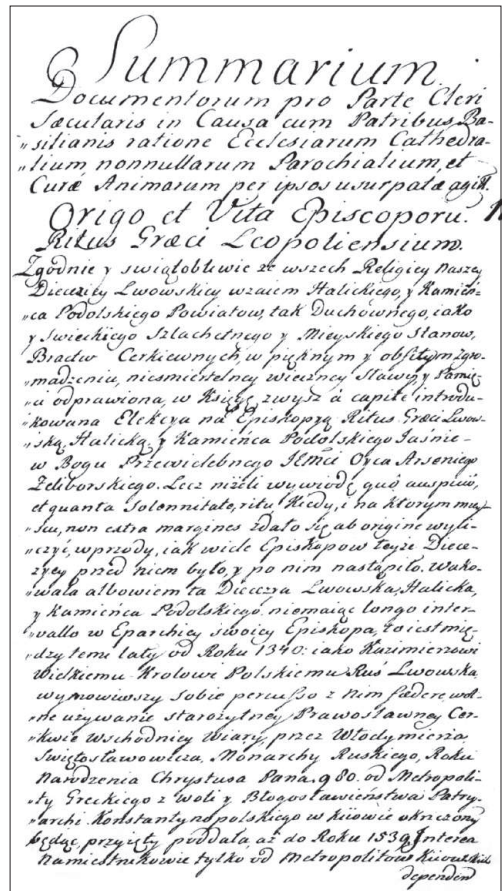 Summarium
Documentorum pro Parte Cleri
Sæcularis in Causa cum Patribus Ba-
silianis ratione Ecclesiarum Cathedra-
lium nonnullarum Parochialium, et
Curæ Animarum per ipsos usurpatæ agitt.
Origo et Vita Episcoporu.
Ritus Græci Leopoliensium.
Zgodnie y swiątobliwie ze wszech Religiey naszey
Diecezicy Lwowskiey wzaiem Halickiego, y Kamień-
ca Podolskiego Powiatow, tak Duchównego, iako
y Swieckiego Szlachetnego y Mieyskiego Stanow,
Bractw Cerkiewnych, w pięknym y obfitym zgro-
madzeniu, niesmiertelney wieczney Sławy y Pamię-
ci odprawiona, w Księgę zwysz a capite introdu-
kowana Elekcya na Episkopyą Ritus Græci Lwow-
ską Halicką y Kamieńca Podolskiego Jaśnie-
w Bogu Przewielebnego Jłmci Oyca Arseniego
Żeliborskiego. Lecz niżeli wywiodę quo auspicio,
et quanta Solennitate, ritu, kiedy, i na ktorym miey-
scu, non extra margines zdało się ab origine wyli-
czyć, wprzody, iak wiele Episkopow teyże Diece-
zyey przed niem było, y po nim nastąpiło. Wako-
wała albowiem ta Diecezya Lwowska, Halicka,
y Kamieńca Podolskiego niemaiąc longo inter-
vallo w Eparchiey swoiey Episkopa, to iest mię-
dzy temi laty od Roku 1340: iako Kazimierzowi
Wielkiemu Krolowi Polskiemu Ruś Lwowska
wymowiwszy sobie percusso z nim fædere, wol-
ne używanie starożytney Prawosławney Cer-
kwie Wschodniey Wiary, przez Włodymierza
Swiętosławowicza, Monarchy Ruskiego, Roku
Narodzenia Chrystusa Pana 980. od Metropoli-
ty Greckiego z woli y Błogosławieństwa Patry-
archi Konstantynopolskiego w Kiiowie okrzczony
będąc przyięty poddała, aż do Roku 1539 Interea
Namiestnikowie tylko od Metropolitow Kiiowskich
dependen